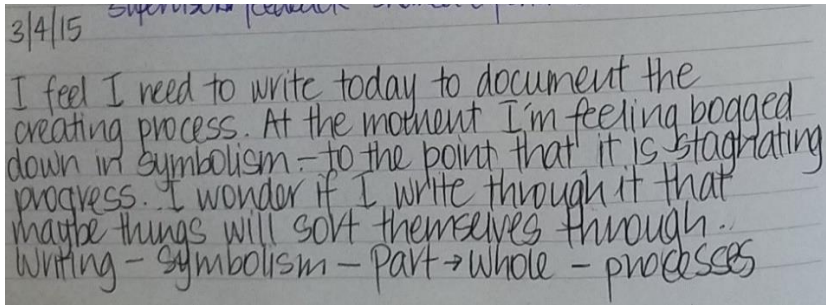 3/4/15
I feel I need to write today to document the
creating process. At the moment I'm feeling bogged
down in symbolism - to the point that it is stagnating
progress. I wonder if I write through it that
maybe things will sort themselves through..
Writing - Symbolism - Part → Whole - processes